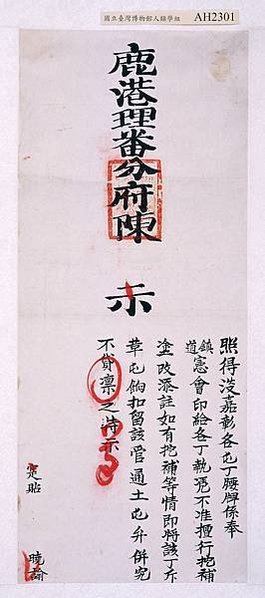 國立臺灣博物館人類學組 AH2301
鹿港理番分府陳 示
照得淡嘉彰各屯丁腰牌係奉
鎮道憲會印給各丁執凭不准擅行挖補
塗改添註如有挖補等情即將該丁斥
革屯餉扣留該管通土屯弁併究
不貸凜之特示
寔貼 曉諭